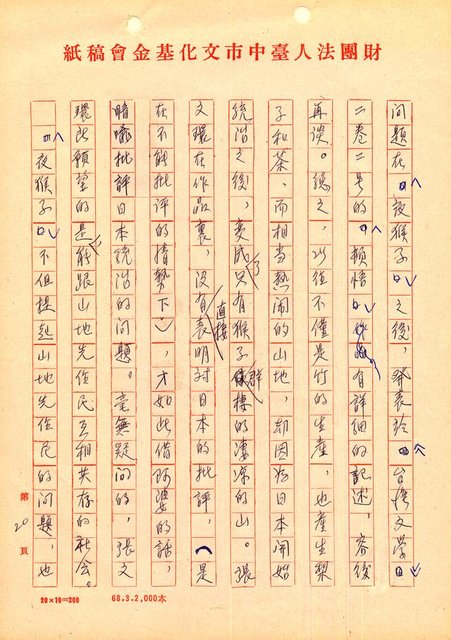 財團法人臺中市文化基金會稿紙
問題在「夜猴子」之後，發表於「台灣文學」
二卷二號的「頓悟」有詳細的記述，容後
再談。總之，以往不僅是竹的生產，也產生梨
子和茶，而相當熱鬧的山地，却因為日本開始
統治之後，變成了只有猴子群棲的淒涼的山。張
文環在作品裏，沒有直接表明對日本的批評，（是
在不能批評的情勢下），才如此借阿婆的話，
暗喻批評日本統治的問題。毫無疑問的，張文
環所願望的是能跟山地先住民互相共存的社會。
「夜猴子」不但提起山地先住民的問題，也
第20頁
20×10=200
68.3.2,000本